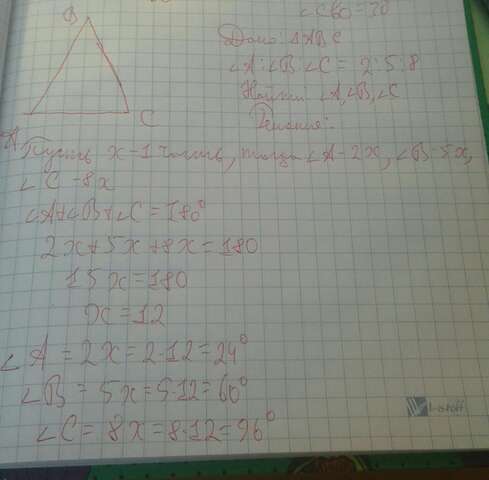 ∠CBO = 70
B
Дано: ΔABC
∠A:∠B:∠C = 2:5:8
Найти: ∠A, ∠B, ∠C
Решение:
A
C
Пусть x - 1 часть, тогда ∠A - 2x, ∠B - 5x,
∠C - 8x
∠A+∠B+∠C = 180°
2x+5x+8x=180
15x=180
x=12
∠A = 2x=2·12=24°
∠B = 5x=5·12=60°
∠C = 8x=8·12=96°